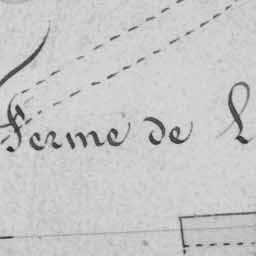 Ferme de L